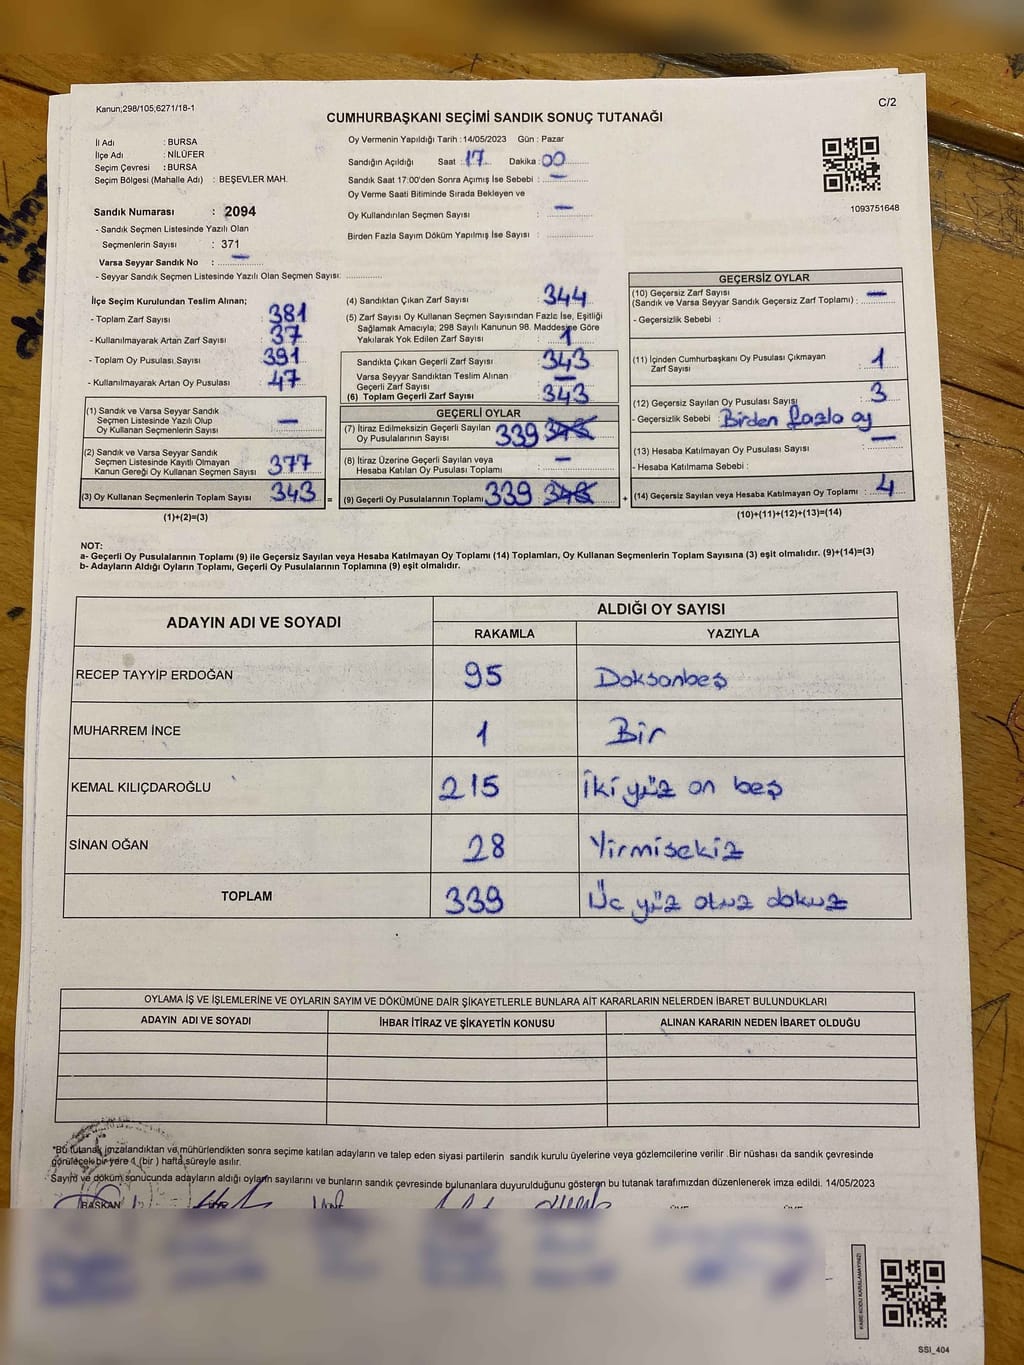 Kanun;298/105,6271/18-1
C/2
CUMHURBAŞKANI SEÇİMİ SANDIK SONUÇ TUTANAĞI
İl Adı : BURSA
İlçe Adı : NİLÜFER
Seçim Çevresi : BURSA
Seçim Bölgesi (Mahalle Adı) : BEŞEVLER MAH.
Sandık Numarası : 2094
- Sandık Seçmen Listesinde Yazılı Olan
Seçmenlerin Sayısı : 371
Varsa Seyyar Sandık No : —
- Seyyar Sandık Seçmen Listesinde Yazılı Olan Seçmen Sayısı:
Oy Vermenin Yapıldığı Tarih : 14/05/2023 Gün : Pazar
Sandığın Açıldığı Saat : 17 Dakika : 00
Sandık Saat 17:00'den Sonra Açımış İse Sebebi : —
Oy Verme Saati Bitiminde Sırada Bekleyen ve
Oy Kullandırılan Seçmen Sayısı : —
Birden Fazla Sayım Döküm Yapılmış İse Sayısı :
1093751648
İlçe Seçim Kurulundan Teslim Alınan;
- Toplam Zarf Sayısı : 381
- Kullanılmayarak Artan Zarf Sayısı : 37
- Toplam Oy Pusulası Sayısı : 391
- Kullanılmayarak Artan Oy Pusulası : 47
(1) Sandık ve Varsa Seyyar Sandık
Seçmen Listesinde Yazılı Olup
Oy Kullanan Seçmenlerin Sayısı : —
(2) Sandık ve Varsa Seyyar Sandık
Seçmen Listesinde Kayıtlı Olmayan
Kanun Gereği Oy Kullanan Seçmen Sayısı : 377
(3) Oy Kullanan Seçmenlerin Toplam Sayısı : 343 =
(1)+(2)=(3)
(4) Sandıktan Çıkan Zarf Sayısı : 344
(5) Zarf Sayısı Oy Kullanan Seçmen Sayısından Fazla İse, Eşitliği
Sağlamak Amacıyla; 298 Sayılı Kanunun 98. Maddesine Göre
Yakılarak Yok Edilen Zarf Sayısı : 1
Sandıkta Çıkan Geçerli Zarf Sayısı : 343
Varsa Seyyar Sandıktan Teslim Alınan
Geçerli Zarf Sayısı : —
(6) Toplam Geçerli Zarf Sayısı : 343
GEÇERLİ OYLAR
(7) İtiraz Edilmeksizin Geçerli Sayılan
Oy Pusulalarının Sayısı : 339
(8) İtiraz Üzerine Geçerli Sayılan veya
Hesaba Katılan Oy Pusulası Toplamı : —
(9) Geçerli Oy Pusulalarının Toplamı : 339 +
GEÇERSİZ OYLAR
(10) Geçersiz Zarf Sayısı
(Sandık ve Varsa Seyyar Sandık Geçersiz Zarf Toplamı) : —
- Geçersizlik Sebebi :
(11) İçinden Cumhurbaşkanı Oy Pusulası Çıkmayan
Zarf Sayısı : 1
(12) Geçersiz Sayılan Oy Pusulası Sayısı : 3
- Geçersizlik Sebebi : Birden fazla oy
(13) Hesaba Katılmayan Oy Pusulası Sayısı : —
- Hesaba Katılmama Sebebi :
(14) Geçersiz Sayılan veya Hesaba Katılmayan Oy Toplamı : 4
(10)+(11)+(12)+(13)=(14)
NOT:
a- Geçerli Oy Pusulalarının Toplamı (9) ile Geçersiz Sayılan veya Hesaba Katılmayan Oy Toplamı (14) Toplamları, Oy Kullanan Seçmenlerin Toplam Sayısına (3) eşit olmalıdır. (9)+(14)=(3)
b- Adayların Aldığı Oyların Toplamı, Geçerli Oy Pusulalarının Toplamına (9) eşit olmalıdır.
ADAYIN ADI VE SOYADI
ALDIĞI OY SAYISI
RAKAMLA YAZIYLA
RECEP TAYYİP ERDOĞAN 95 Doksanbeş
MUHARREM İNCE 1 Bir
KEMAL KILIÇDAROĞLU 215 İki yüz on beş
SİNAN OĞAN 28 Yirmisekiz
TOPLAM 339 Üç yüz otuz dokuz
OYLAMA İŞ VE İŞLEMLERİNE VE OYLARIN SAYIM VE DÖKÜMÜNE DAİR ŞİKAYETLERLE BUNLARA AİT KARARLARIN NELERDEN İBARET BULUNDUKLARI
ADAYIN ADI VE SOYADI İHBAR İTİRAZ VE ŞİKAYETİN KONUSU ALINAN KARARIN NEDEN İBARET OLDUĞU
*Bu tutanak imzalandıktan ve mühürlendikten sonra seçime katılan adayların ve talep eden siyasi partilerin sandık kurulu üyelerine veya gözlemcilerine verilir .Bir nüshası da sandık çevresinde
görülecek bir yere 1 (bir ) hafta süreyle asılır.
Sayım ve döküm sonucunda adayların aldığı oyların sayılarını ve bunların sandık çevresinde bulunanlara duyurulduğunu gösteren bu tutanak tarafımızdan düzenlenerek imza edildi. 14/05/2023
BAŞKAN
KARE KODU KARALAMAYINIZ!
SSI_404